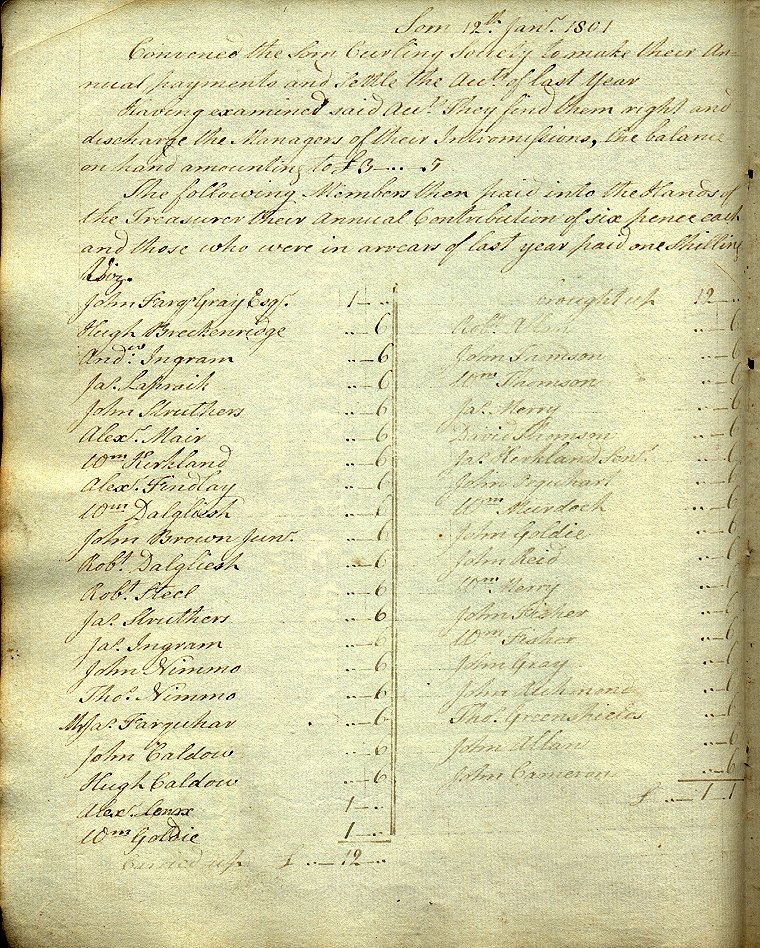 Sorn 12th Janr. 1801
Convened the Sorn Curling Society to make their An-
nual payments and Settle the Accts. of last Year
Having examined said Acct. They find them right and
discharge the Managers of their Intromissions, the balance
on hand amounting to £3 -..- 5
The following Members then paid into the Hands of
the Treasurer their Annual Contribution of six pence each
and those who were in arrears of last year paid one Shilling
Viz.
John Farqr. Gray Esqr. 1 - ..
Hugh Breckenridge .. - 6
Andw. Ingram .. - 6
Jas. Lapraik .. - 6
John Struthers .. - 6
Alexr. Mair .. - 6
Wm Kirkland .. - 6
Alexr. Findlay .. - 6
Wm Dalgliesh .. - 6
John Brown Junr. .. - 6
Robt. Dalgliesh .. - 6
Robt. Steel .. - 6
Jas. Struthers .. - 6
Jas. Ingram .. - 6
John Nimmo .. - 6
Thos. Nimmo .. - 6
Mr Jas. Farquhar .. - 6
John Caldow .. - 6
Hugh Caldow .. - 6
Alexr. Lenox 1 - ..
Wm Goldie 1 - ..
Carried up £ .. - 12 - ..
brought up 12 - ..
Robt. .. - 6
John Samson .. - 6
Wm Thomson .. - 6
Jas. Merry .. - 6
David Thomson .. - 6
Jas. Kirkland Senr. .. - 6
John Urquhart .. - 6
Wm Murdoch .. - 6
John Goldie .. - 6
John Reid .. - 6
Wm Merry .. - 6
John Fisher .. - 6
Wm Fisher .. - 6
John Gray .. - 6
John Richmond .. - 6
Thos. Greenshields .. - 6
John Allan .. - 6
John Cameron .. - 6
£ .. - 1 - 1